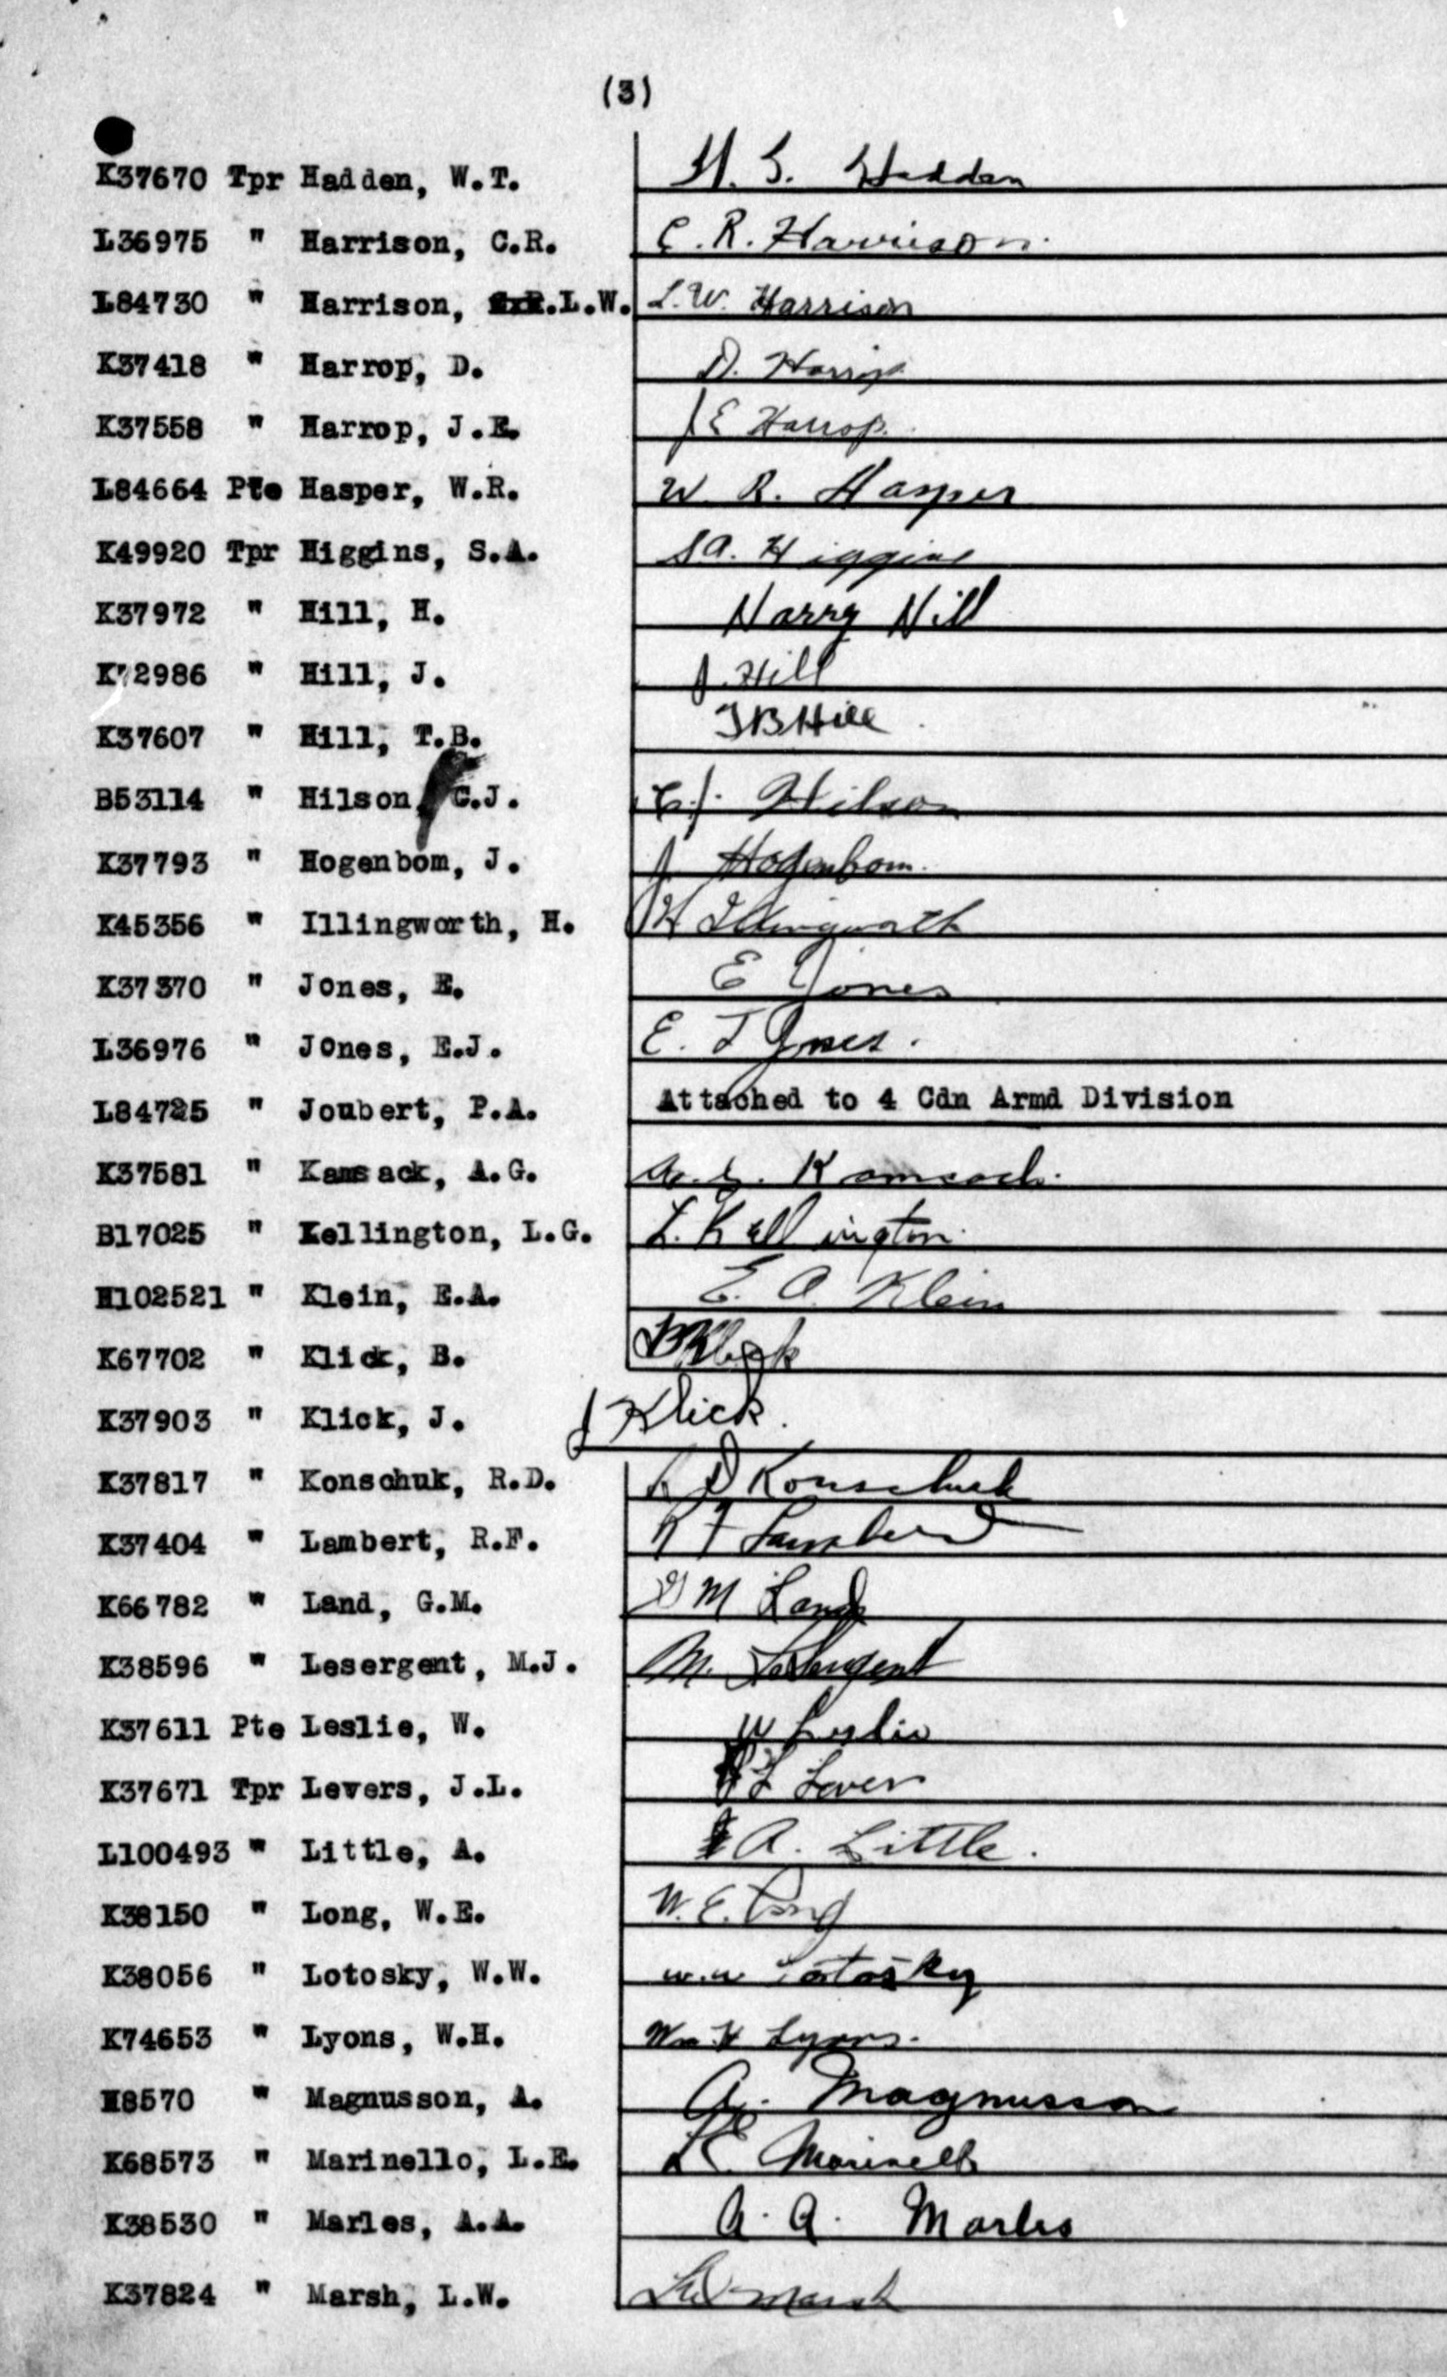 (3)
K37670 Tpr Hadden, W.T. W. T. Hadden
L36975 " Harrison, C.R. C. R. Harrison
L84730 " Harrison, L.W. L.W. Harrison
K37418 " Harrop, D. D. Harrop
K37558 " Harrop, J.E. J E Harrop.
L84664 Pte Hasper, W.R. W R. Hasper
K49920 Tpr Higgins, S.A. S A. Higgins
K37972 " Hill, H. Harry Hill
2986 " Hill, J. J. Hill
K37607 " Hill, T.B. T B Hill
B53114 " Hilson, C.J. C.J. Hilson
K37793 " Hogenbom, J. J. Hogenbom.
K45356 " Illingworth, H. H Illingworth
K37370 " Jones, E. E Jones
L36976 " Jones, E.J. E. J Jones.
L84725 " Joubert, P.A. Attached to 4 Cdn Armd Division
K37581 " Kamsack, A.G. A. G. Kamsack.
B17025 " Kellington, L.G. L. Kellington.
H102521 " Klein, E.A. E. A. Klein
K67702 " Klick, B. B Klick
K37903 " Klick, J. J Klick.
K37817 " Konschuk, R.D. R D Konschuk
K37404 " Lambert, R.F. R F Lambert
K66782 " Land, G.M. G M Land
K38596 " Lesergent, M.J. M. LeSergent
K37611 Pte Leslie, W. W Leslie
K37671 Tpr Levers, J.L. J L Levers
L100493 " Little, A. A. Little.
K38150 " Long, W.E. W. E. Long
K38056 " Lotosky, W.W. W.W Lotosky
K74653 " Lyons, W.H. Wm H Lyons.
H8570 " Magnusson, A. A. Magnusson
K68573 " Marinello, L.E. L E. Marinello
K38530 " Marles, A.A. A. A. Marles
K37824 " Marsh, L.W. L W Marsh